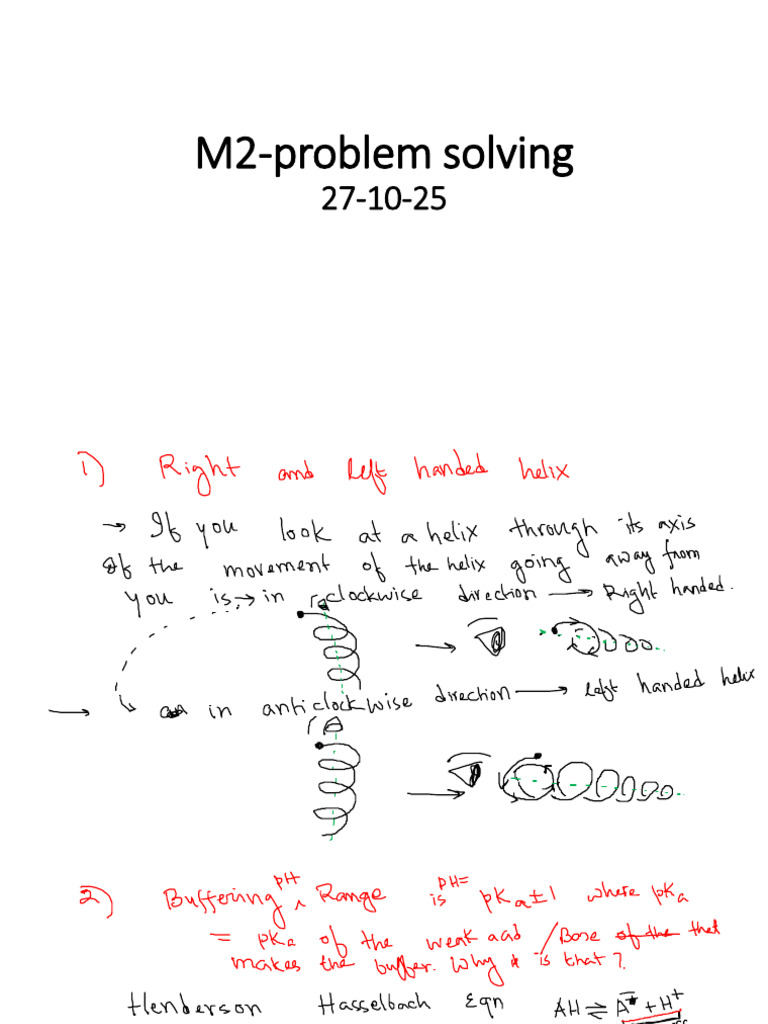 M2-problem solving
27-10-25
1) Right and left handed helix
→ If you look at a helix through its axis
If the movement of the helix going away from
you is → in clockwise direction → Right handed.
→ in anticlockwise direction → left handed helix
2) Buffering pH Range is pH= pKa±1 where pKa
= pKa of the weak acid / Base of the that
makes the buffer. Why is that?
Henderson Hasselbach Eqn AH ⇌ A⁻ + H⁺